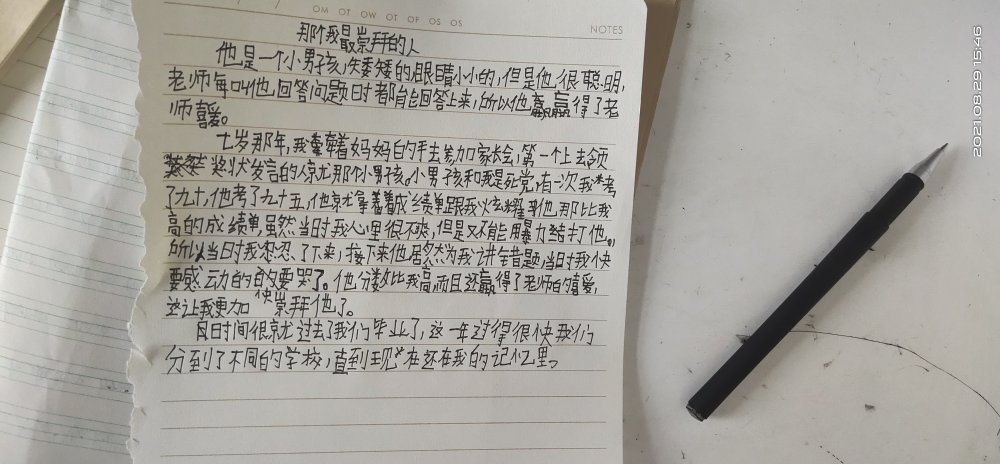 OM OT OW OT OF OS OS
NOTES
那个我最崇拜的人
他是一个小男孩,矮矮的,眼睛小小的,但是他很聪明,
老师每叫他回答问题时都能回答上来,所以他赢得了老
师喜爱。
七岁那年,我牵着妈妈的手去参加家长会,第一个上去领
奖状发言的人就那个小男孩。小男孩和我是死党,有一次我考
了九十,他考了九十五,他就拿着成绩单跟我炫耀他那比我
高的成绩单,虽然当时我心里很不爽,但是又不能用暴力打他。
所以当时我忍了下来,接下来他居然为我讲错题,当时我快
要感动的要哭了。他分数比我高,而且还赢得了老师的喜爱,
这让我更加崇拜他了。
时间很就过去了我们毕业了,这一年过得很快我们
分到了不同的学校,直到现在还在我的记忆里。
2021.08.29 15:46